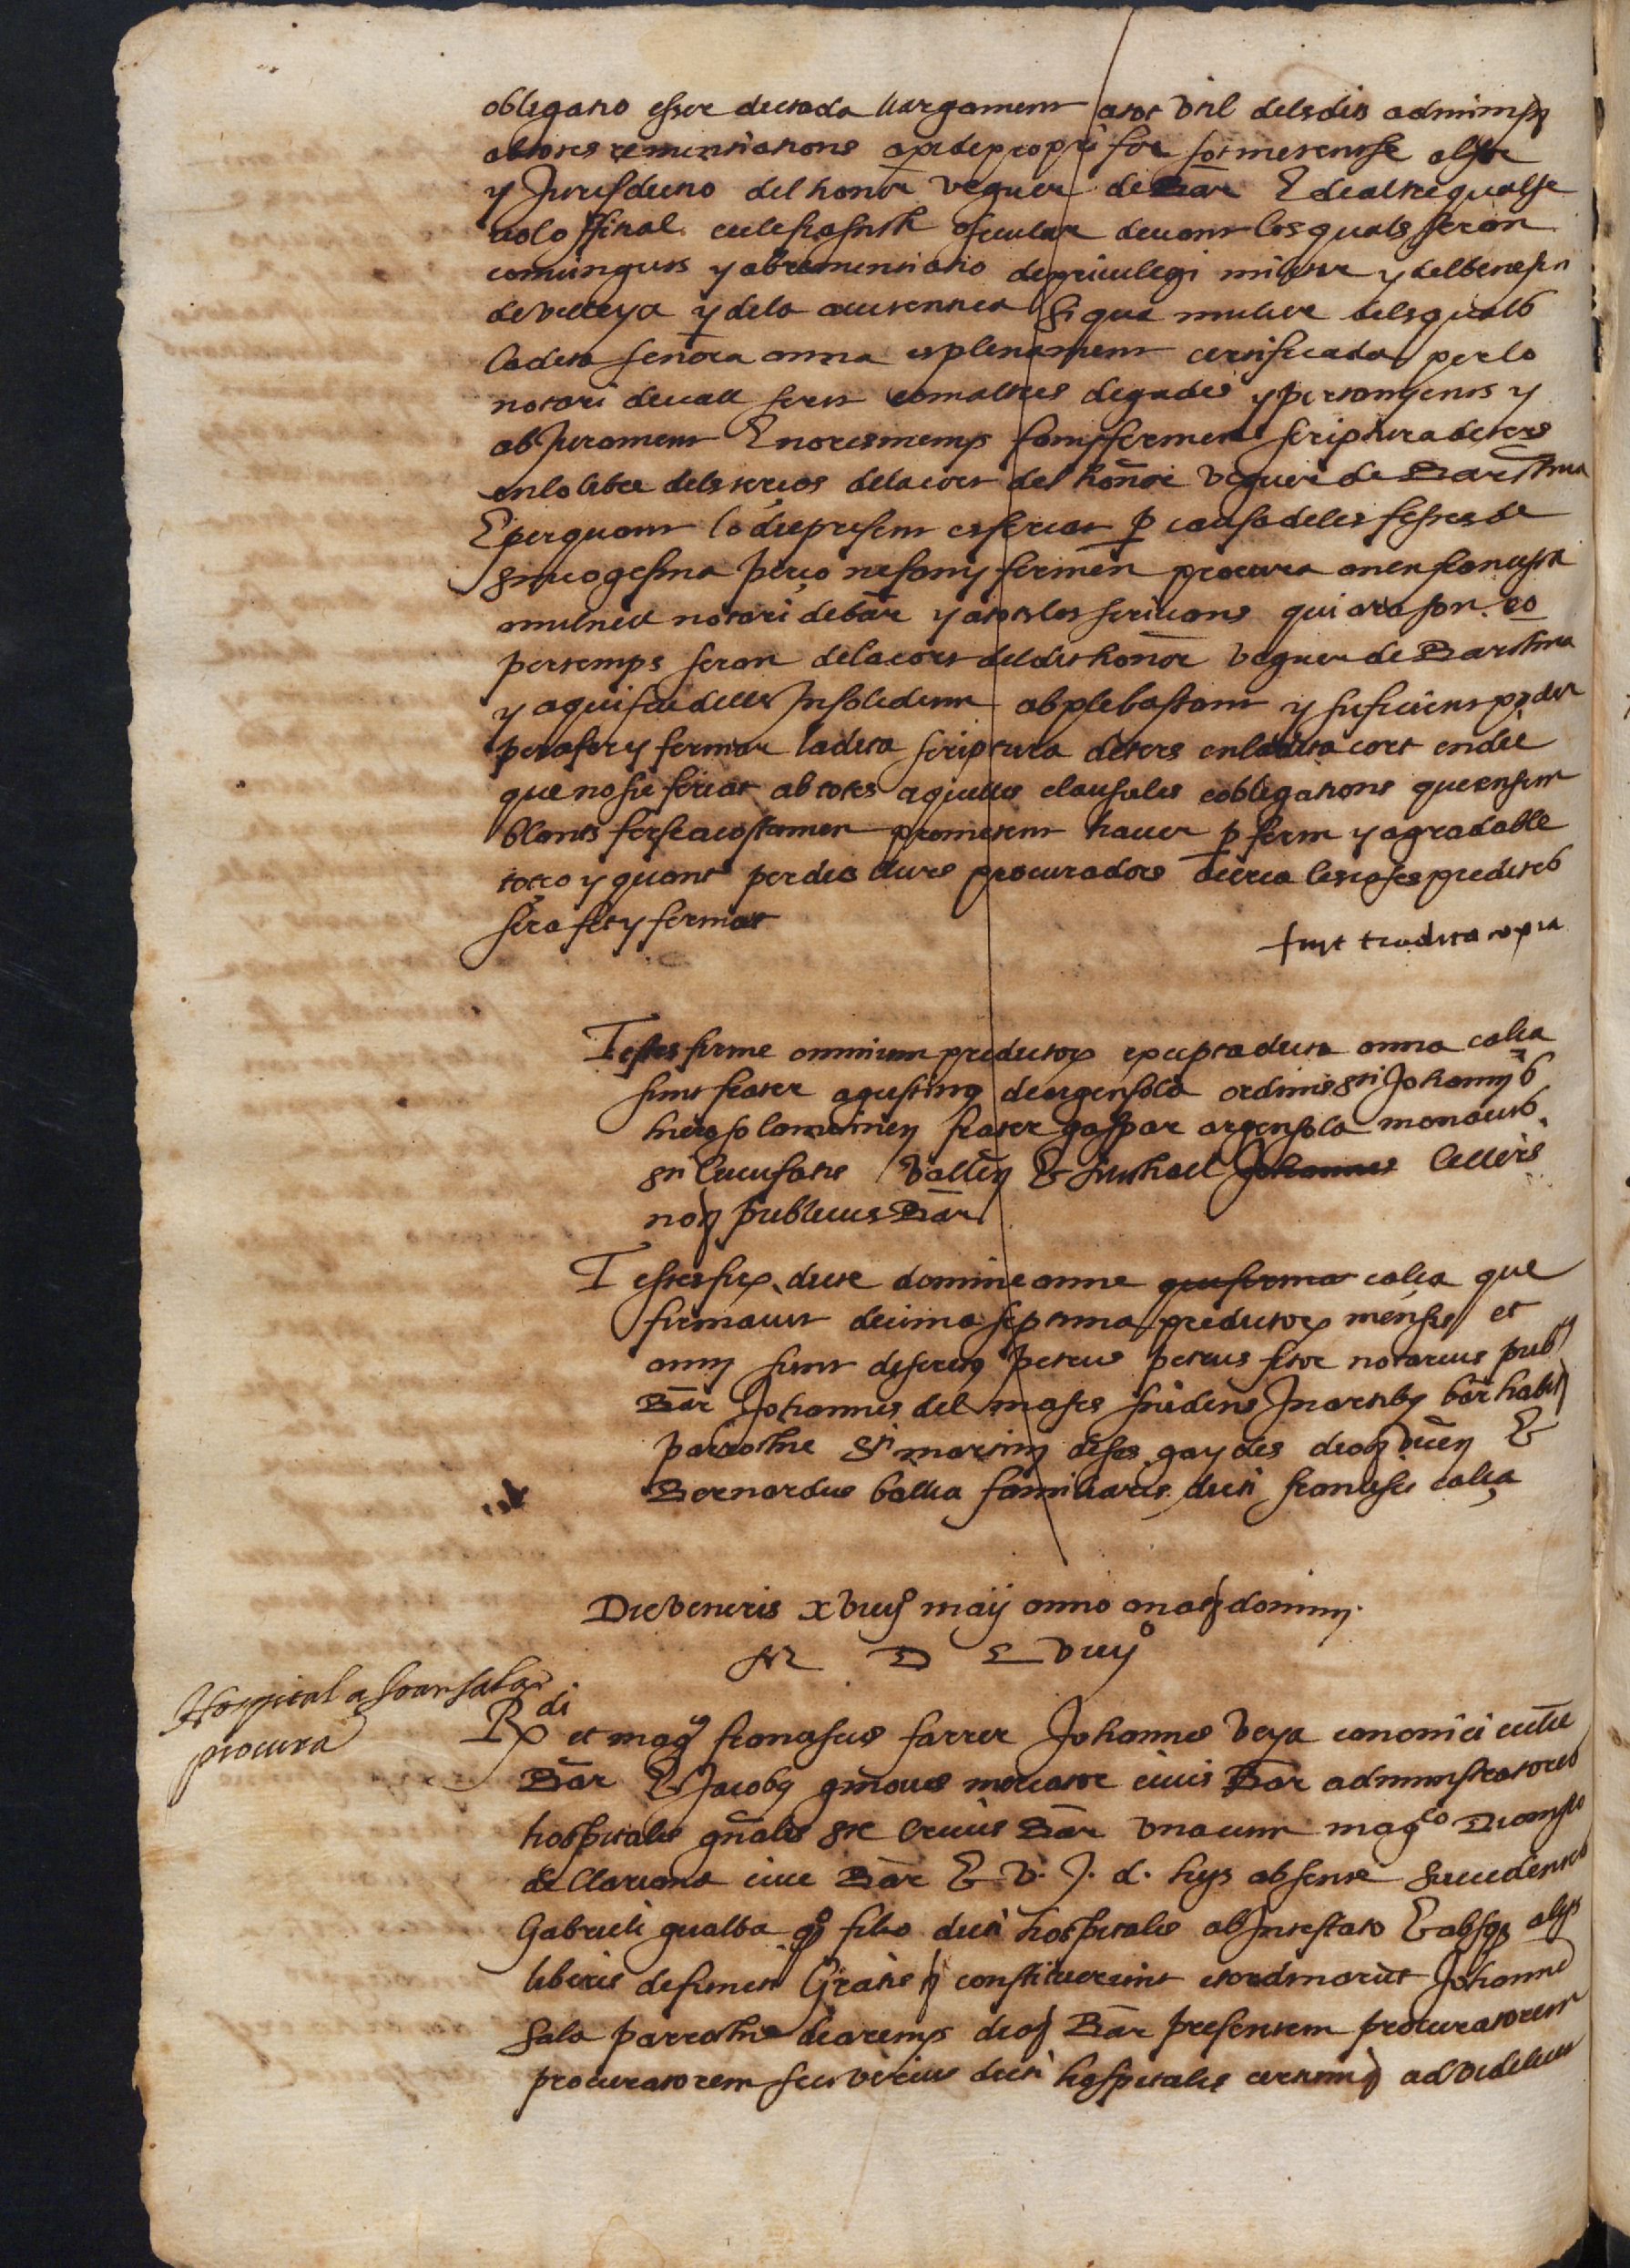 obligatio esser dictada llargament a tot util dels dits administ
ab totes renuntiations axi de propri for sotmetentse al for
y Jurisdictio del honor veguer de Bar E de altre qualse
vol official ecclesiastich o secular devant los quals seran
convinguts y ab renuntiatio de privilegi militar y del benefici
de velleya y de la autentica si qua mulier dels quals
la dita señora anna es plenament certificada per lo
notari devall scrit com altres degudes y pertanyents y
ab Jurament E noresmenys fan y fermen scriptura de ters
en lo libre dels tersos de la cort del honor veguer de Barchna
E per quant lo die present es feriat p causa de les festes de
sincogesma perço ne fan y fermen procura a nen francesch
mulnell notari de bar y a tots los scrivans qui ara son eo
per temps seran de la cort del dit honor veguer de Barchna
y a quiscu dells Insolidum ab ple bastant y suficient poder
pera fer y fermar la dita scriptura de ters en la dita cort en die
que no sie feriat ab totes aquelles clausules e obligations que en sem
blants fer se acostumen prometent haver p ferm y agradable
tot ço y quant per dits llurs procuradors circa les coses predites
sera fet y fermat
fuit tradita copia
Testes firme omnium predictor excepta dicta anna calça
sunt frater agustinus de argensola ordinis sti Johannis
hierosolamitani frater gaspar argensola monacus
sti Cucufatis Vallen & michael Johannes celleres
not publicus Bar
Testes fir dicte domine anne que firma calça que
firmavit decima septima predictor mensis et
anni sunt discretus petrus petrus fitor notarius pub
Bar Johannes del mases studens In artibus bar habit
parrochie sti martini de ses gayoles dioc vicen &
Bernardus ballia familiaris dicti francisci calça
Die veneris xviij maij anno a nat domini
M D L viij
Hospital a Joan sala
procura
Rdi et mag franciscus farrer Johannes Veya canonici eccte
Bar & Jacobus ginoves mercator civis Bar administratores
hospitalis gnalis ste Crucis Bar una cum magco Dionisio
de Clariana cive Bar & V. J. d. hijs absente succedentes
Gabrieli gualba qo filio dicti hospitalis ab Intestato & absq alijs
liberis defuncti Gratis constituerunt et ordinarut Johanne
Sala parrochie de aremps dioc Bar presentem procuratorem
procuratorem seu verius dicti hospitalis certum ad videlicet